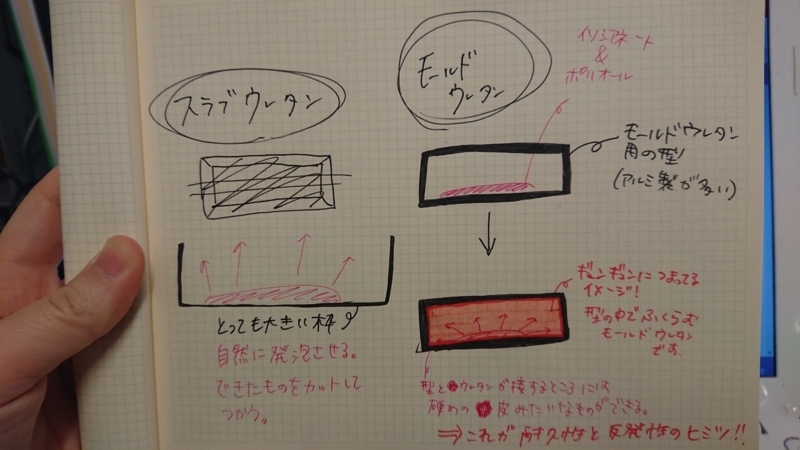 スラブウレタン
とっても大きい枠
自然に発泡させる。
できたものをカットして
つかう。
モールド
ウレタン
イソシアネート
&
ポリオール
モールドウレタン
用の型
(アルミ製が多い)
ギュンギュンにつまってる
イメージ!
型の中でふくらむ
モールドウレタン
です。
型とウレタンが接するところには
硬めの皮みたいなものができる。
⇒これが耐久性と反発性のヒミツ!!